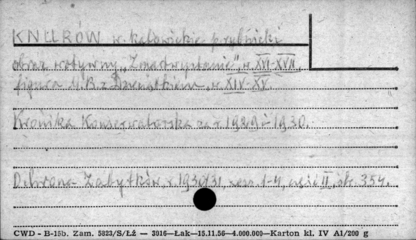 KNURÓW w. katowickie p. rybnicki
obraz wotywny „Zmartwychwstanie", w. XVI-XVII,
figura M.B. z Dzieciątkiem, w. XIV-XV.
Kronika Konserwatorska za r. 1929 - 1930.
Ochrona Zabytków, r. 1930/31, zesz. 1-4, część II, str. 354.
CWD - B-15b. Zam. 5823/S/Łż — 3916—Łak—15.11.56—4.000.000—Karton kl. IV A1/200 g